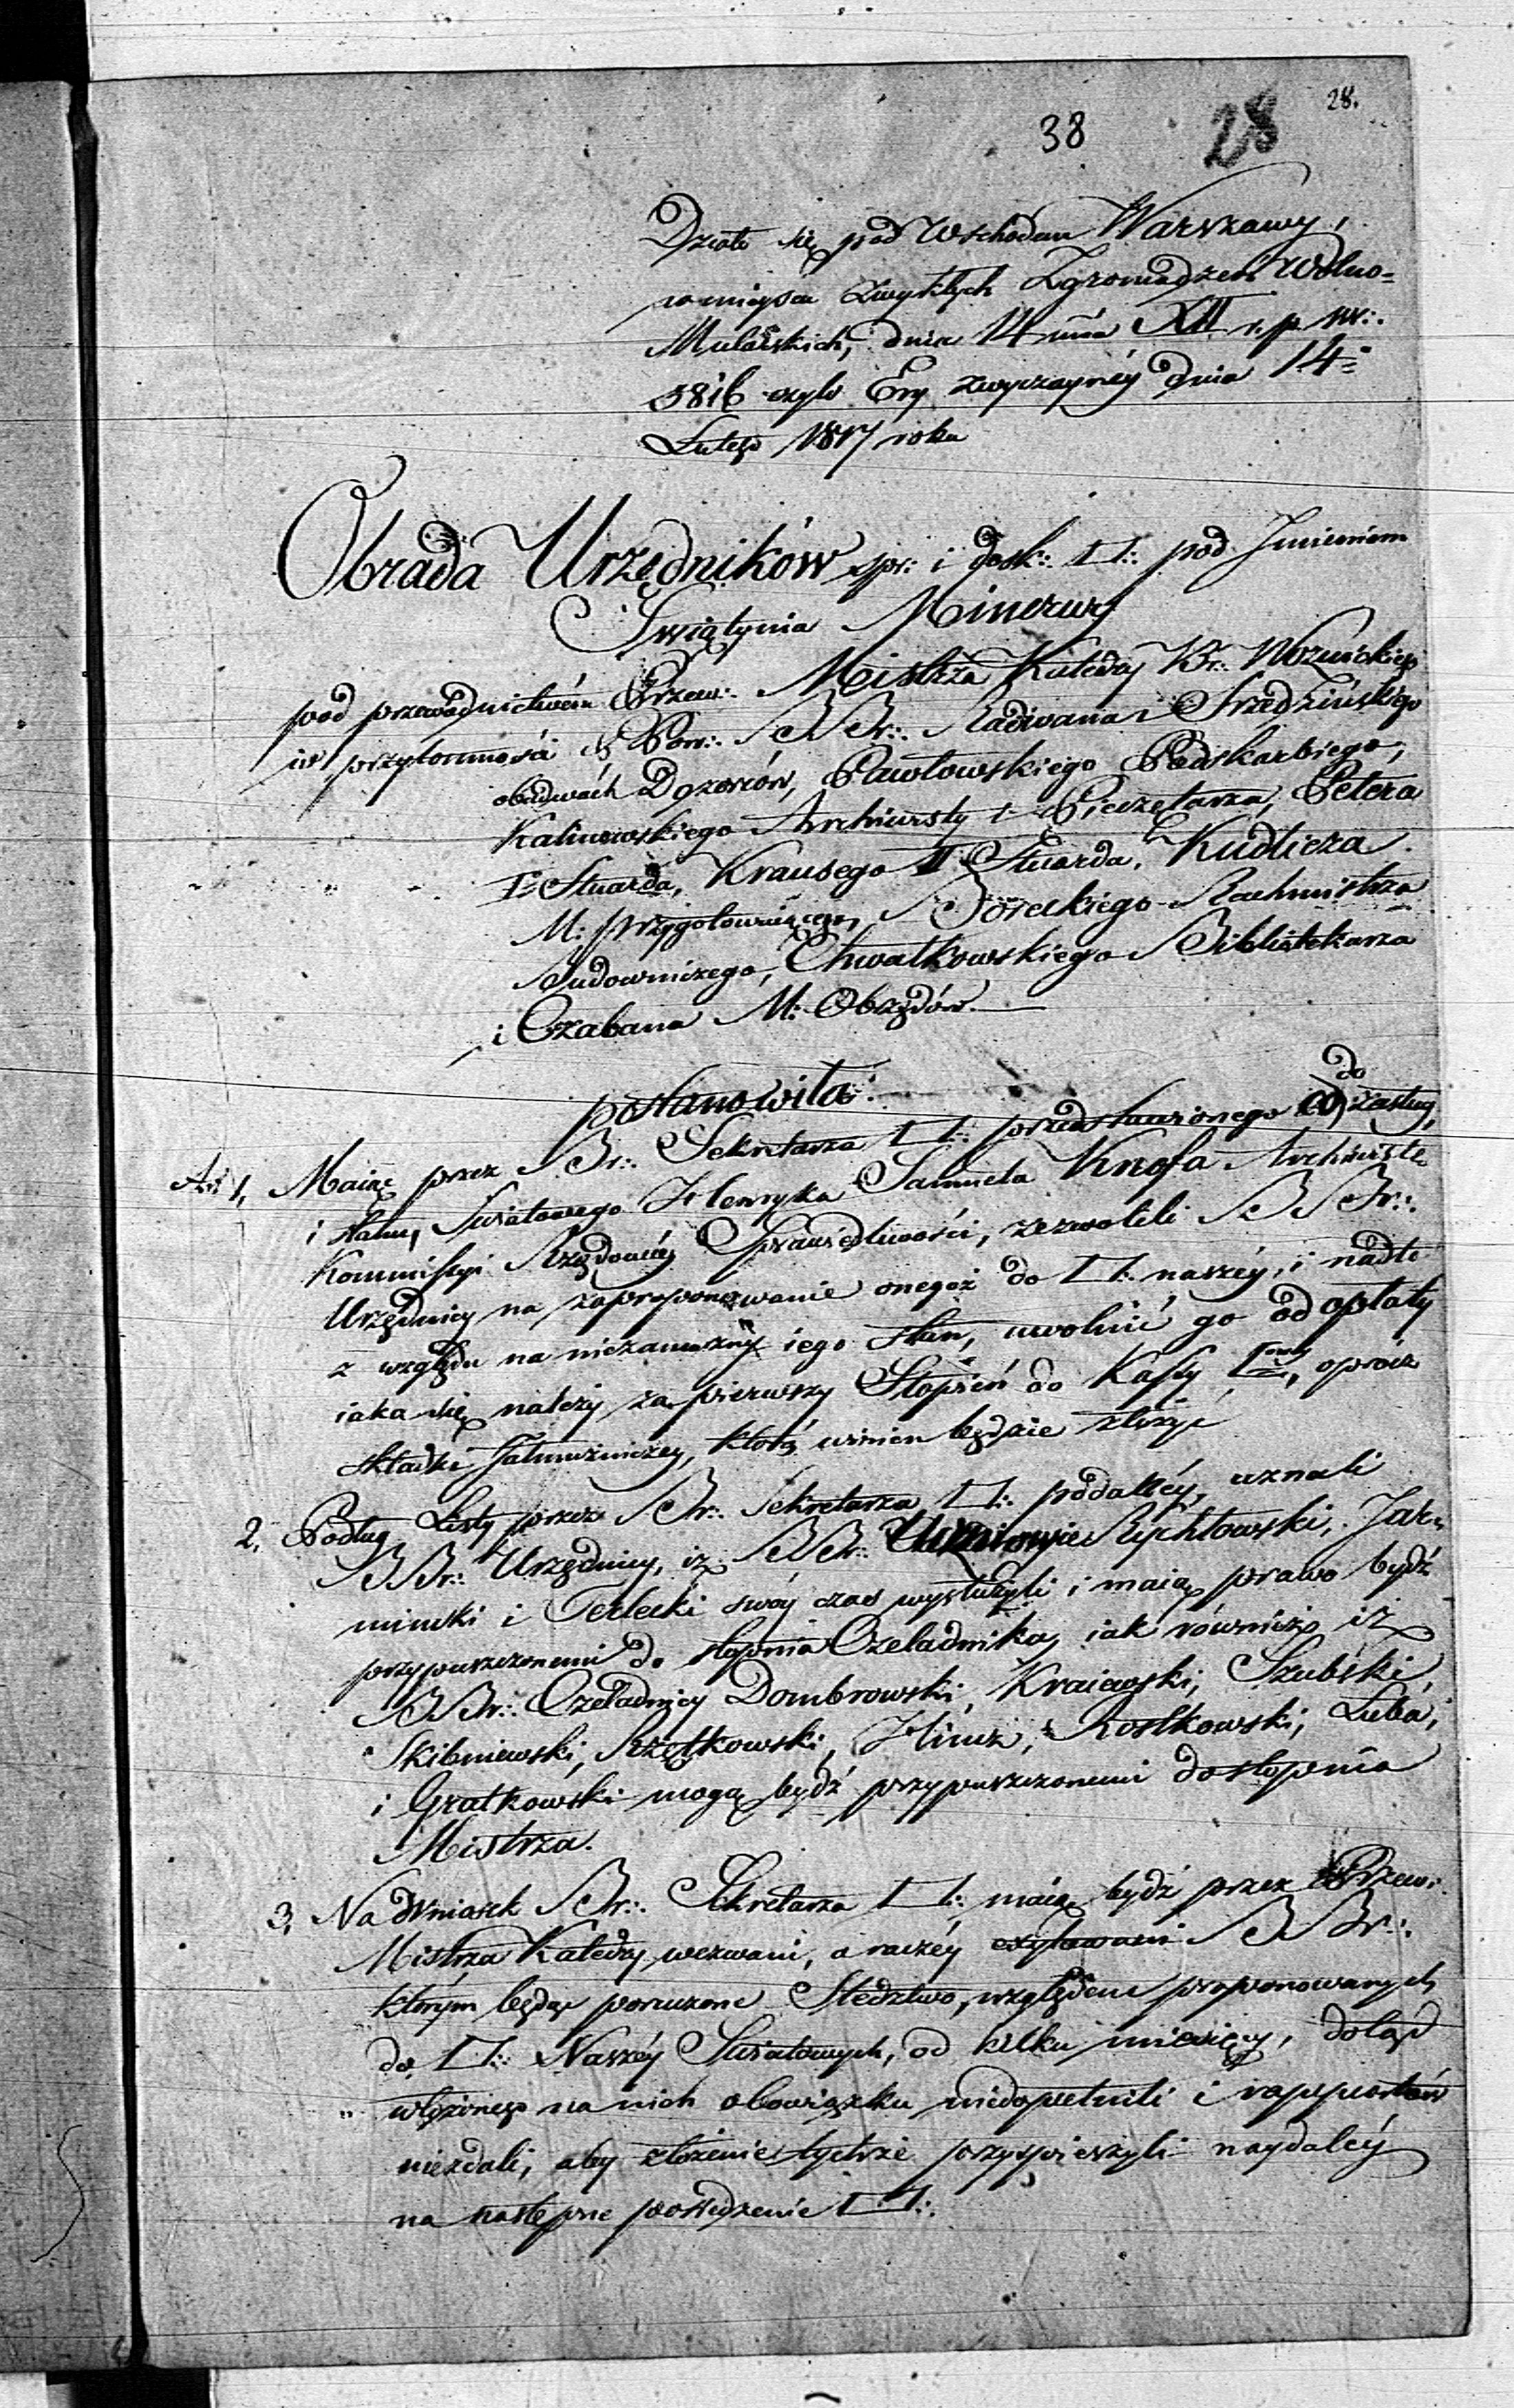 38 28 28.
Działo się pod Wschodem Warszawy,
w mieyscu zwykłych Zgromadzeń Wolno=
Mularskich, dnia 14 mca XII r. p. ś.
5816 czyli Ery zwyczayney dnia 14=
Lutego 1817 roku
Obrada Urzędników spr: i dosk: □: pod Imieniem
Swiątynia Minerwy
pod przewodnictwem Przew: Mistrza Katedry Br: Woznickiego
w przytomności Pow: B Br: Radwana i Srzedzińskiego
obudwóch Dozorców, Pawłowskiego Podskarbiego,
Kalinowskiego Archiwisty i Pieczętarza, Petera
I Stuarda, Krausego II Stuarda, Kudlicza
M: przygotowuiącego, Roreckiego Rachmistrza
Budowniczego, Chwalkowskiego Bibliotekarza
i Czabana M: Obrzędów.
postanowiła:
Art 1, Maiąc przez Br: Sekretarza □: przedstawionego do zasług,
i stanu Swiatowego Henryka Samuela Knofa Archiwistę
Kommissyi Rządowey Sprawiedliwości, zezwolili B Br:
Urzędnicy na zaproponowanie onegoż do □: naszéy, i nadto
z względu na niezamożny iego stan, uwolnić go od opłaty
iaka się należy za pierwszy Stopień do Kassy □, oprócz
składki Jałmużniczey, którą winien będzie złożyć
2, Podług Listy przez Br: Sekretarza □: podaléy, uznali
B Br: Urzędnicy, iż B Br: Uczniowie Rychłowski, Jar=
minski i Terlecki swóy czas wysłużyli i maią prawo bydź
przypuszczonemi do stopnia Czeladnika, iak również iż
B Br: Czeladnicy Dombrowski, Kraiewski, Szubski,
Skibniewski, Rzętkowski, Hincz, Rostkowski, Luba,
i Gratkowski mogą bydź przypuszczonemi do stopnia
Mistrza.
3, Na Wniosek Br: Sekretarza □: maią bydź przez Przew:
Mistrza Katedry wezwani, a raczéy B Br:
którym będąc poruczone Sledztwo, względem proponowanych
do □: Naszéy Swiatowych, od kilku miesięcy, dotąd
włożonego na nich obowiązku niedopełnili i rapportów
niezdali, aby złożenie tychże przyspieszyli naydaléy
na następne posiedzenie □: